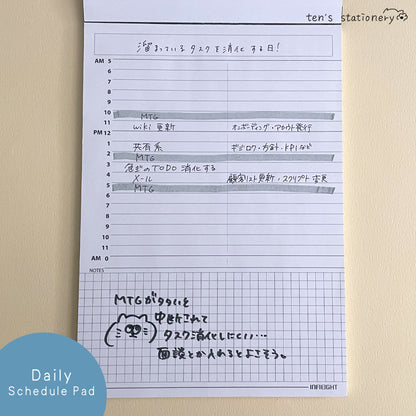 ten's stationery
溜まっているタスクを消化する日!
AM 5
6
7
8
9
10
MTG
11
wiki 更新 オンボーディング・アカウト発行
PM 12
1
共有系 ギジロク・方針・KPIなど
2
MTG
3
急ぎのTODO 消化する
4
メール 顧客リスト更新・スクリプト
5
MTG
6
7
8
9
10
11
AM 0
NOTES
MTGが多い日
中断されて
タスク消化しにくい…
面談とか入れるとよさそう。
INFREIGHT
Daily
Schedule Pad